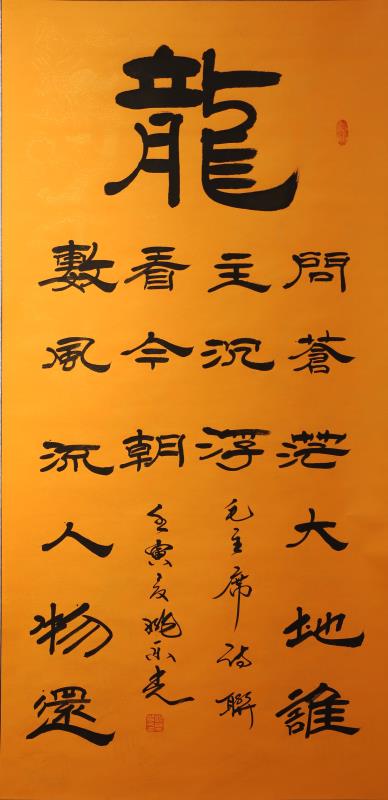 龍
問蒼茫大地誰
主沉浮
毛主席诗聯
數風流人物還
看今朝
壬寅夏姚光